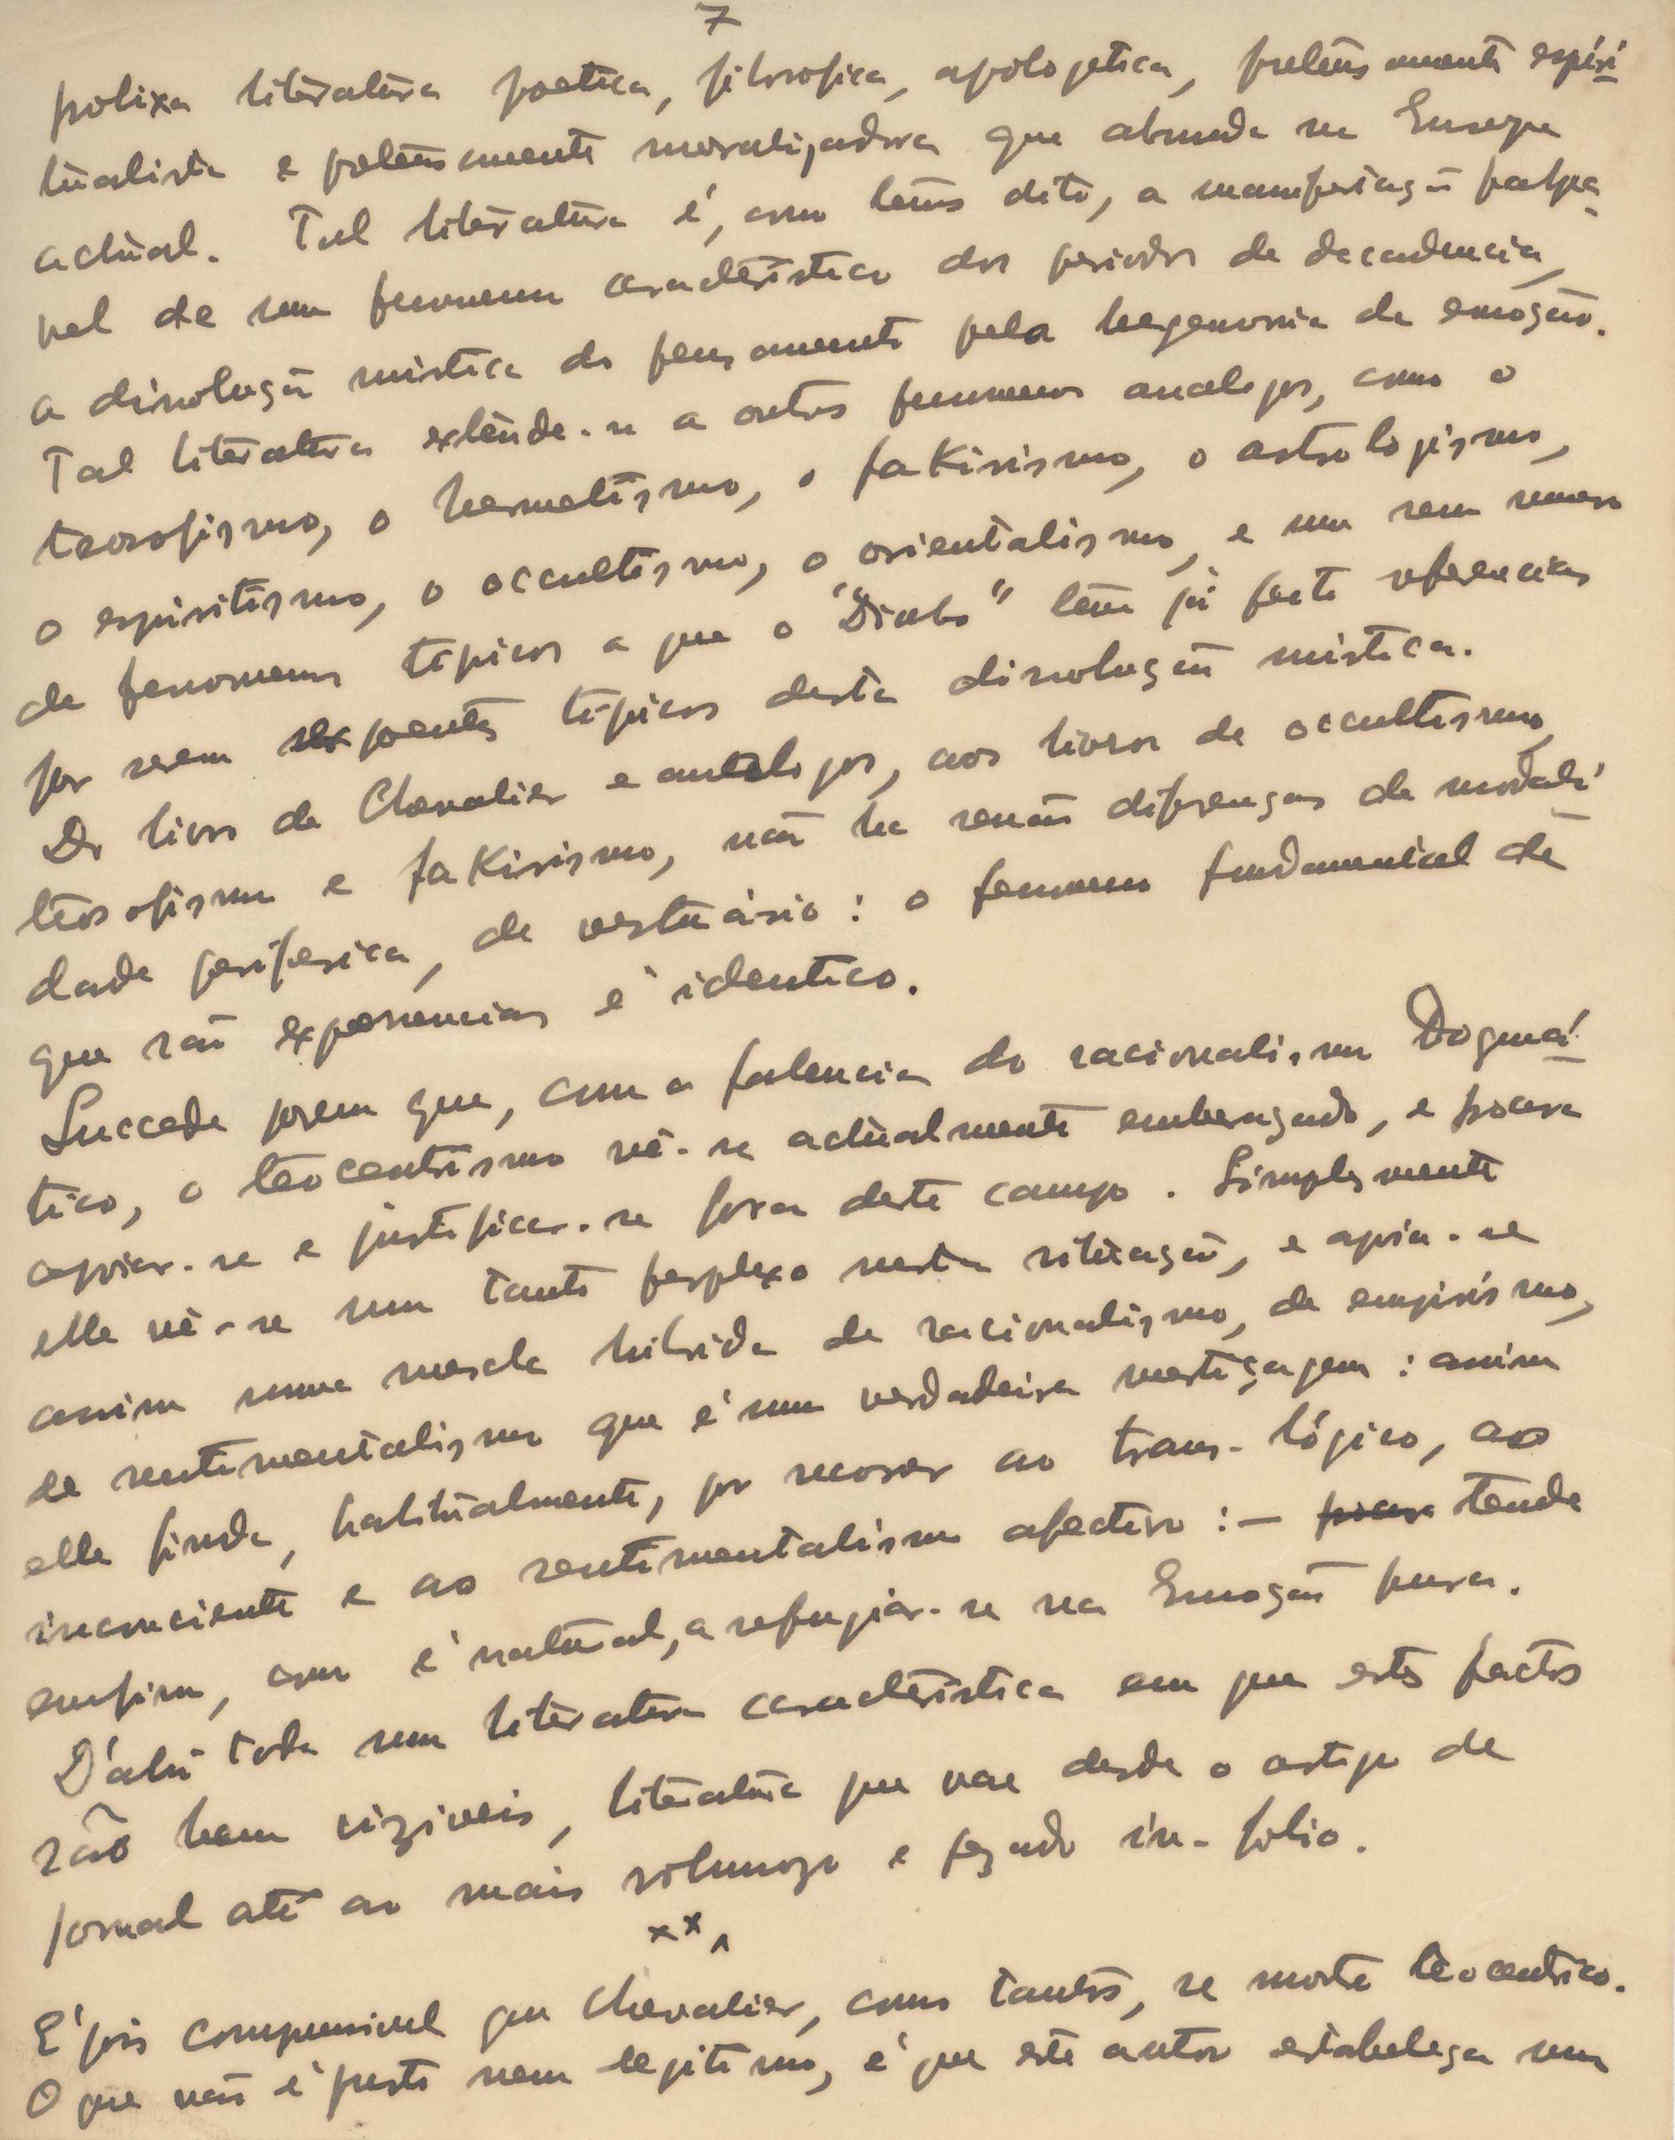 7
prolixa literatura poetica, filosofica, apologetica, pretensamente espiri-
tualista e pretensamente moralizadora que abunda na Europa
actual. Tal literatura é, como temos dito, a manifestação palpa-
vel de um fenomeno caracteristico dos periodos de decadencia,
a dissolução mistica do pensamento pela hegemonia da emoção.
Tal literatura extende-se a outros fenomenos analogos, como o
teosofismo, o hermetismo, o fakirismo, o astrologismo,
o espiritismo, o occultismo, o orientalismo, e um sem numero
de fenomenos tipicos a que o "Diabo" tem já feito referencias
por serem expoentes tipicos desta dissolução mistica.
Do livro de Chevalier e analogos, aos livros de occultismo,
teosofismo e fakirismo, não ha senão diferenças de modali-
dade periferica, de vestuário: o fenomeno fundamental de
que são exponencias é identico.
Succede porem que, com a falencia do racionalismo Dogmá-
tico, o teocentrismo vê-se actualmente embaraçado, e procura
apoiar-se e justificar-se fora deste campo. Simplesmente
elle vê-se um tanto perplexo nesta situação, e apoia-se
assim numa mescla hibrida de racionalismo, de empirismo,
de sentimentalismo que é uma verdadeira mestiçagem: assim
elle finda, habitualmente, por recorrer ao trans-lógico, ao
inconsciente e ao sentimentalismo afectivo:- procura tende
emfim, como é natural, a refugiar-se na Emoção pura.
D'ahi toda uma literatura caracteristica em que estes factos
são bem viziveis, literatura que vae desde o artigo de
jornal até ao mais volumozo e pezado in-folio.
x x x
E' pois compreensivel que Chevalier, como tantos, se mostre teocentrico.
O que não é justo nem legitimo, é que este autor estabeleça uma